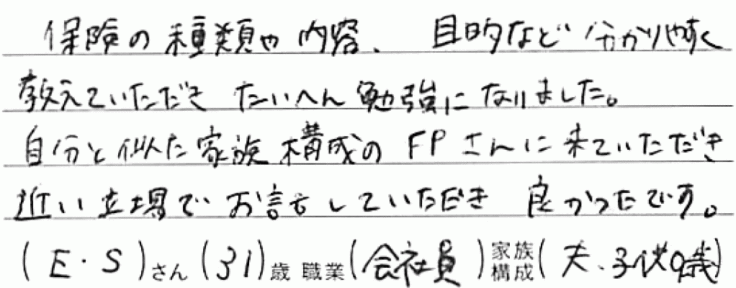 保険の種類や内容、目的など分かりやすく
教えていただき たいへん勉強になりました。
自分と似た家族構成のFPさんに来ていただき
近い立場でお話していただき 良かったです。
(E・S)さん(31)歳 職業(会社員)家族構成(夫、子供0歳)